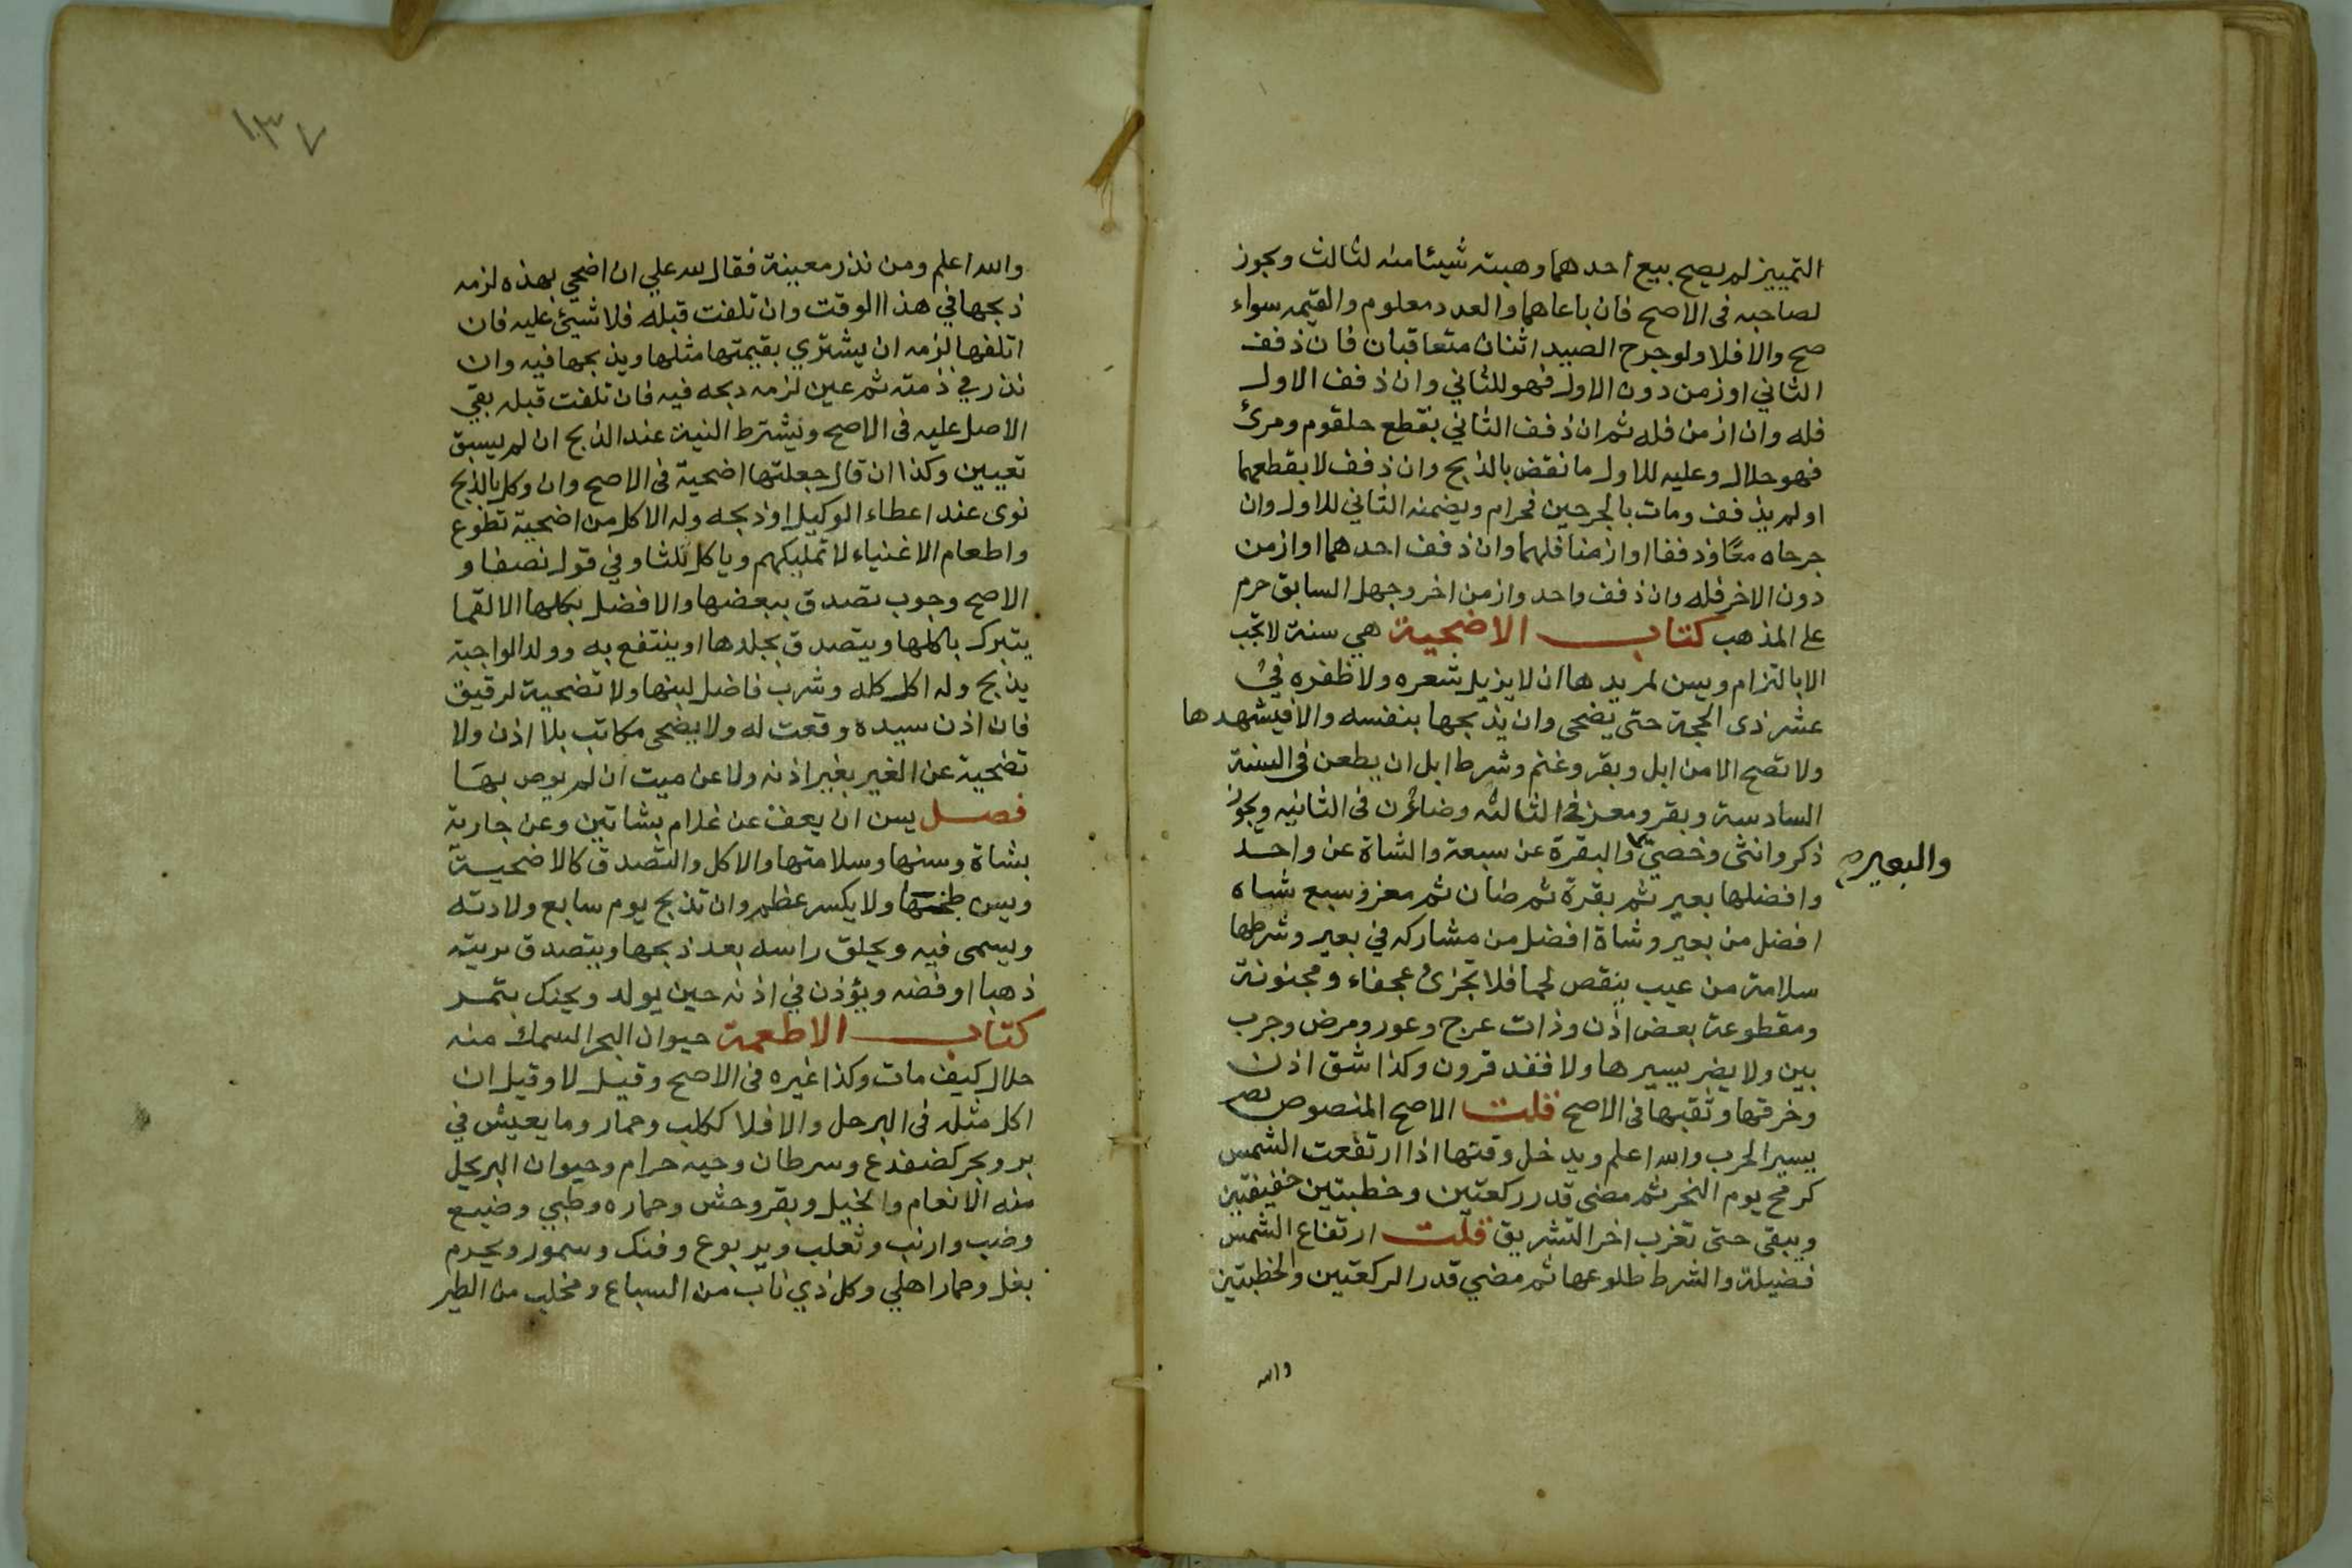 التمييز لم يصح بيع احدهما وهبته شيئا منه لثالث ويجوز
لصاحبه فى الاصح فان باعاهما والعدد معلوم والقيمه سواء
صح والا فلا ولو جرح الصيد اثنان متعاقبان فان ذفف
الثاني اوزمن دون الاول فهو للثاني وان ذفف الاول
فله وان ازمن فله ثم ان ذفف الثاني بقطع حلقوم ومرئ
فهو حلال وعليه للاول ما نقض بالذبح وان ذفف لا بقطعهما
او لم يذفف ومات بالجرحين فحرام ويضمنه الثاني للاول وان
جرحاه معًا وذففا او ازمنا فلهما وان ذفف احدهما او ازمن
دون الاخر فله وان ذفف واحد وازمن اخر وجهل السابق حرم
على المذهب كتاب الاضحية هي سنة لا تجب
الا بالتزام ويسن لمريدها ان لا يزيل شعره ولا ظفره في
عشر ذى الحجة حتى يضحى وان يذبحها بنفسه والا فيشهدها
ولا تصح الا من ابل وبقر وغنم وشرط ابل ان يطعن فى السنة
السادسة وبقر ومعز في الثالثه وضائن فى الثانيه ويجوز
ذكر وانثى وخصيّ والبقرة عن سبعة والشاة عن واحد
والبعير صح
وافضلها بعير ثم بقرة ثم ضان ثم معز وسبع شياه
افضل من بعير وشاة افضل من مشاركه في بعير وشرطها
سلامة من عيب ينقص لحما فلا تجزئ عجفاء ومجنونة
ومقطوعة بعض اذن وذات عرج وعور ومرض وجرب
بين ولا يضر يسيرها ولا فقد قرون وكذا شق اذن
وخرقها وثقبها فى الاصح قلت الاصح المنصوص يضر
يسير الجرب والله اعلم ويدخل وقتها اذا ارتفعت الشمس
كرمح يوم النحر ثم مضى قدر ركعتين وخطبتين خفيفتين
ويبقى حتى تغرب اخر التشريق قلت ارتفاع الشمس
فضيلة والشرط طلوعها ثم مضي قدر الركعتين والخطبتين
والله
١٣٧
والله اعلم ومن نذر معينة فقال لله علي ان اضحي بهذه لزمه
ذبحها في هذا الوقت وان تلفت قبله فلا شيئ عليه فان
اتلفها لزمه ان يشتري بقيمتها مثلها ويذبحها فيه وان
نذر في ذمته ثم عين لزمه ذبحه فيه فان تلفت قبله بقي
الاصل عليه فى الاصح وتشترط النية عند الذبح ان لم يسبق
تعيين وكذا ان قال جعلتها اضحية فى الاصح وان وكل بالذبح
نوى عند اعطاء الوكيل او ذبحه وله الاكل من اضحية تطوع
واطعام الاغنياء لا تمليكهم وياكل ثلثا وفي قول نصفا و
الاصح وجوب تصدق ببعضها والافضل بكلها الا لقما
يتبرك باكلها ويتصدق بجلدها او ينتفع به وولد الواجبة
يذبح وله اكل كله وشرب فاضل لبنها ولا تضحية لرقيق
فان اذن سيده وقعت له ولا يضحى مكاتب بلا اذن ولا
تضحية عن الغير بغير اذنه ولا عن ميت ان لم يوص بها
فصل يسن ان يعق عن غلام بشاتين وعن جارية
بشاة وسنها وسلامتها والاكل والتصدق كالاضحية
ويسن طبخها ولا يكسر عظم وان تذبح يوم سابع ولادته
ويسمى فيه ويحلق راسه بعد ذبحها ويتصدق بزينته
ذهبا او فضه ويؤذن في اذنه حين يولد ويحنك بتمر
كتاب الاطعمة حيوان البحر السمك منه
حلال كيف مات وكذا غيره فى الاصح وقيل لا وقيل ان
اكل مثله فى البر حل والا فلا ككلب وحمار وما يعيش في
بر وبحر كضفدع وسرطان وحيه حرام وحيوان البر يحل
منه الانعام والخيل وبقر وحش وحماره وظبي وضبع
وضب وارنب وثعلب ويربوع وفنك وسمور ويحرم
بغل وحمار اهلي وكل ذي ناب من السباع ومخلب من الطير